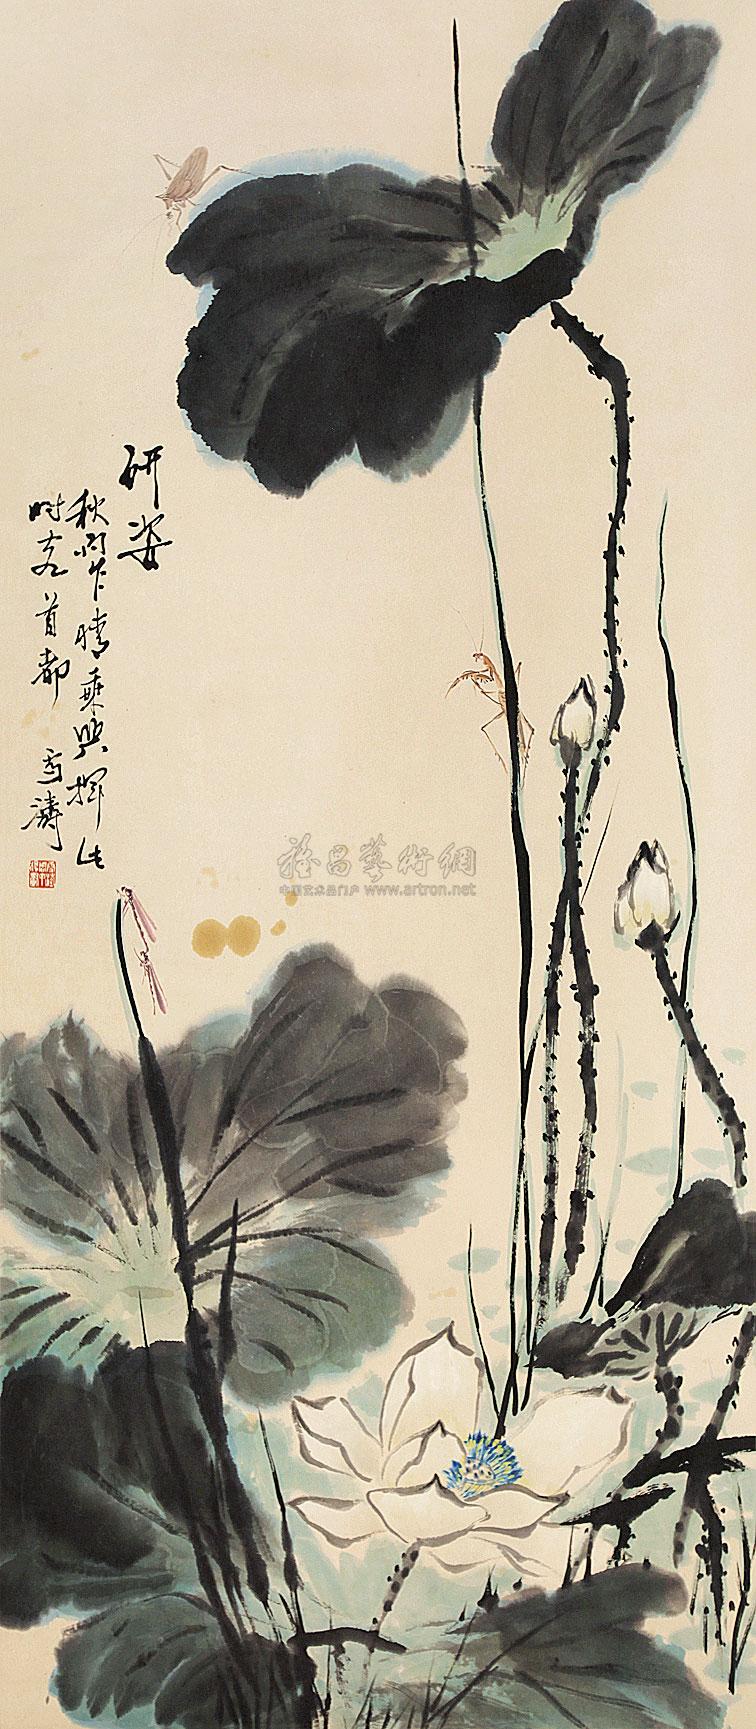 研姿
秋雨乍晴乘興揮此
時客首都 雪濤
雅昌藝術網
中国艺术品门户 www.artron.net